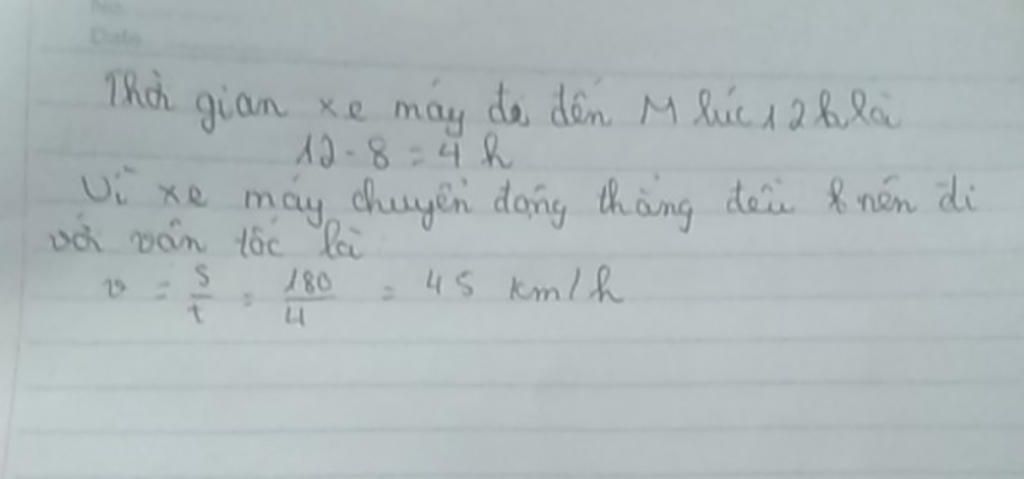 No.
Date
Thời gian xe máy đã đến M lúc 12h là
12 - 8 = 4 h
Vì xe máy chuyển động thẳng đều nên đi
với vận tốc là
v = S/t = 180/4 = 45 km/h